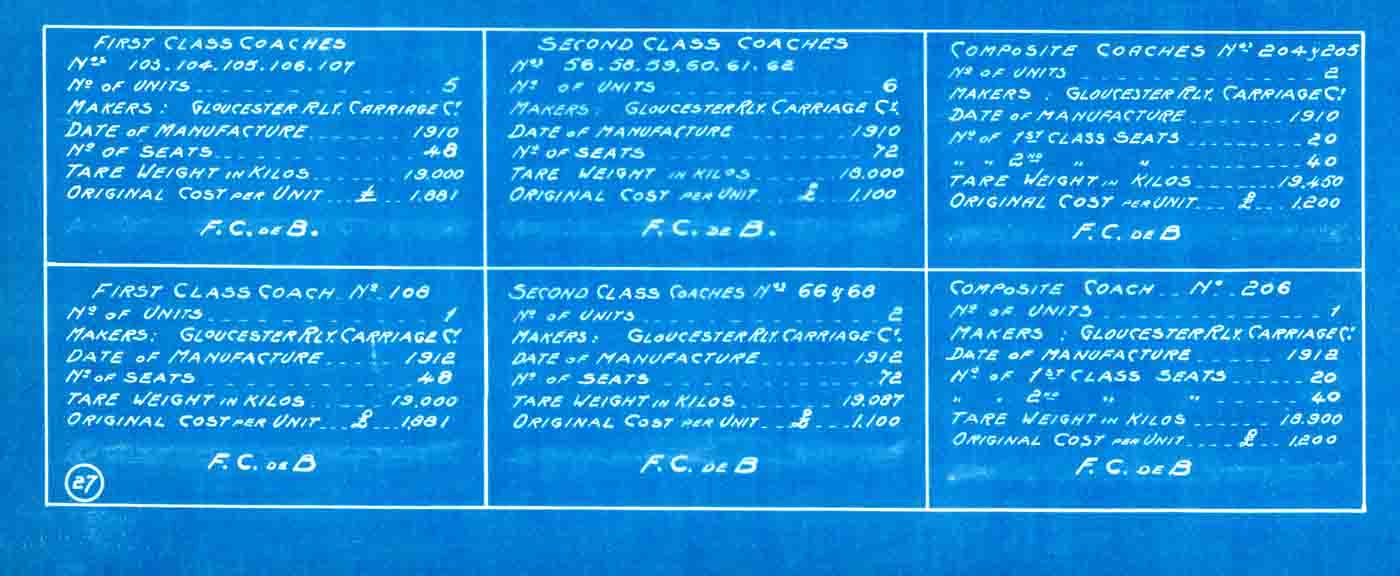 FIRST CLASS COACHES
Nºs 103.104.105.106.107
Nº OF UNITS 5
MAKERS: GLOUCESTER RLY. CARRIAGE Cº.
DATE OF MANUFACTURE 1910
Nº OF SEATS 48
TARE WEIGHT IN KILOS 19,000
ORIGINAL COST PER UNIT £ 1,881
F. C. DE B.
SECOND CLASS COACHES
Nºs 56.58.59.60.61.62
Nº OF UNITS 6
MAKERS: GLOUCESTER RLY. CARRIAGE Cº.
DATE OF MANUFACTURE 1910
Nº OF SEATS 72
TARE WEIGHT IN KILOS 18,000
ORIGINAL COST PER UNIT £ 1,100
F. C. DE B.
COMPOSITE COACHES Nºs 204 y 205
Nº OF UNITS 2
MAKERS: GLOUCESTER RLY. CARRIAGE Cº
DATE OF MANUFACTURE 1910
Nº OF 1ST CLASS SEATS 20
" " 2ND " " 40
TARE WEIGHT IN KILOS 19,450
ORIGINAL COST PER UNIT £ 1,200
F. C. DE B
FIRST CLASS COACH Nº 108
Nº OF UNITS 1
MAKERS: GLOUCESTER RLY. CARRIAGE Cº
DATE OF MANUFACTURE 1912
Nº OF SEATS 48
TARE WEIGHT IN KILOS 19,000
ORIGINAL COST PER UNIT £ 1,881
F. C. DE B
27
SECOND CLASS COACHES Nºs 66 y 68
Nº OF UNITS 2
MAKERS: GLOUCESTER RLY. CARRIAGE Cº.
DATE OF MANUFACTURE 1912
Nº OF SEATS 72
TARE WEIGHT IN KILOS 19,087
ORIGINAL COST PER UNIT £ 1,100
F. C. DE B
COMPOSITE COACH Nº 206
Nº OF UNITS 1
MAKERS: GLOUCESTER RLY. CARRIAGE Cº.
DATE OF MANUFACTURE 1912
Nº OF 1ST CLASS SEATS 20
" " 2ND " " 40
TARE WEIGHT IN KILOS 18,900
ORIGINAL COST PER UNIT £ 1,200
F. C. DE B